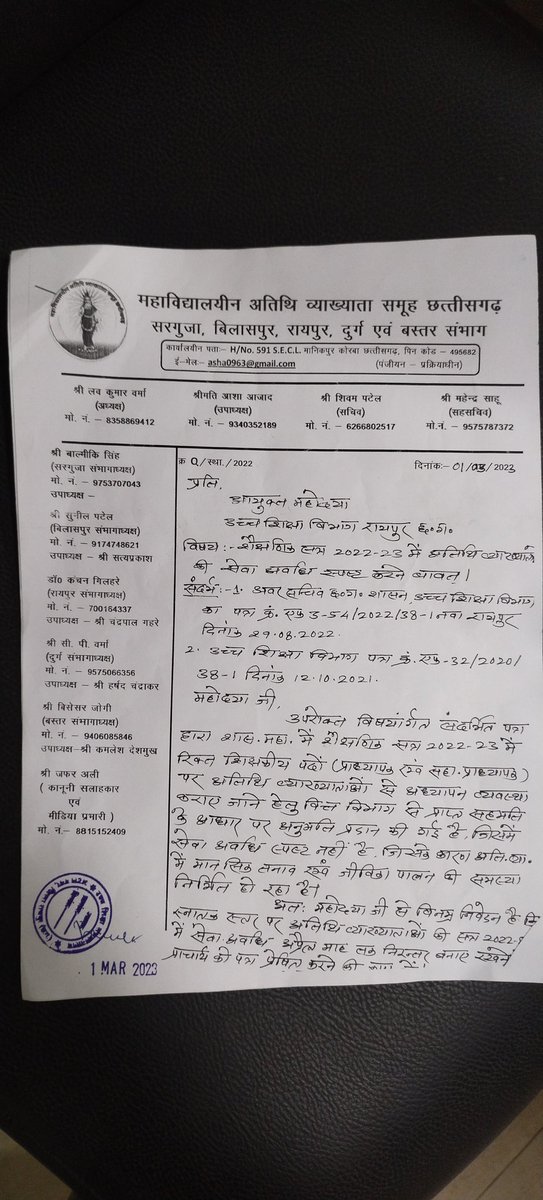 महाविद्यालयीन अतिथि व्याख्याता समूह छत्तीसगढ़
सरगुजा, बिलासपुर, रायपुर, दुर्ग एवं बस्तर संभाग
कार्यालयीन पताः- H/No. 591 S.E.C.L. मानिकपुर कोरबा छत्तीसगढ़, पिन कोड - 495682
ई-मेल- asha0963@gmail.com (पंजीयन - प्रक्रियाधीन)
श्री लव कुमार वर्मा
(अध्यक्ष)
मो. नं. - 8358869412
श्रीमति आशा आजाद
(उपाध्यक्ष)
मो. नं. - 9340352189
श्री शिवम पटेल
(सचिव)
मो. नं. - 6266802517
श्री महेन्द्र साहू
(सहसचिव)
मो. नं.- 9575787372
श्री बाल्मीकि सिंह
(सरगुजा संभागाध्यक्ष)
मो. नं. - 9753707043
उपाध्यक्ष -
श्री सुनील पटेल
(बिलासपुर संभागाध्यक्ष)
मो. नं.- 9174748621
उपाध्यक्ष - श्री सत्यप्रकाश
डॉ0 कंचन गिलहरे
(रायपुर संभागाध्यक्ष)
मो. नं. - 700164337
उपाध्यक्ष - श्री चद्रपाल गहरे
श्री सी. पी. वर्मा
(दुर्ग संभागाध्यक्ष)
मो. नं. - 9575066356
उपाध्यक्ष - श्री हर्षद चद्राकर
श्री बिसेसर जोगी
(बस्तर संभागाध्यक्ष)
मो. नं. - 9406085846
उपाध्यक्ष-श्री कमलेश देशमुख
श्री जफर अली
( कानूनी सलाहकार
एवं
मीडिया प्रमारी )
मो. नं.- 8815152409
क्र Q/स्था./2022 दिनांकः- 01/03/2023
प्रति,
आयुक्त महोदया
उच्च शिक्षा विभाग रायपुर छ०ग०
विषय :- शैक्षणिक सत्र 2022-23 में अतिथि
की सेवा अवधि स्पष्ट करने बावत।
संदर्भ:-1. अवर सचिव छ०ग० शासन, उच्च शिक्षा विभाग
का पत्र क्रं. एफ 3-54/2022/38-1 नवा रायपुर
दिनांक 29.08.2022.
2. उच्च शिक्षा विभाग पत्र क्रं. एफ-32/2020/
38-1 दिनांक 12.10.2021.
महोदया जी,
उपरोक्त विषयांर्गत संदर्भित पत्र
द्वारा शास. महा. में शैक्षणिक सत्र 2022-23 में
रिक्त शिक्षकीय पदों (प्राध्यापक एवं सहा. प्राध्यापक)
पर अतिथि व्याख्याताओं से अध्यापन व्यवस्था
कराए जाने हेतु वित्त विभाग से प्राप्त सहमति
के आधार पर अनुमति प्रदान की गई है, जिसमें
सेवा अवधि स्पष्ट नहीं है, जिसके कारण अति.व्या.
में मानसिक तनाव एवं जीविका पालन की समस्या
निर्मित हो रहा है।
अतः महोदया जी से विनम्र निवेदन है कि
स्नातक स्तर पर अतिथि व्याख्याताओं की सत्र 2022-
में सेवा अवधि अप्रैल माह तक निरन्तर बनाए रखने
प्राचार्य को पत्र प्रेषित करने की
1 MAR 2023